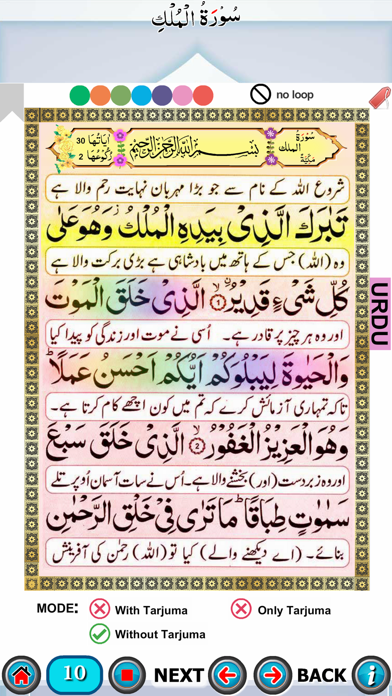 سُوْرَةُ الْمُلْكِ
no loop
اٰيَاتُهَا 30
رُكُوْعُهَا 2
بِسْمِ اللهِ الرَّحْمٰنِ الرَّحِيْمِ
سُوْرَةُ
الملك
مَكِّيَّةٌ
شروع اللہ کے نام سے جو بڑا مہربان نہایت رحم والا ہے
تَبٰرَكَ الَّذِيْ بِيَدِهِ الْمُلْكُ ۫ وَهُوَ عَلٰى
وہ (اللہ) جس کے ہاتھ میں بادشاہی ہے بڑی برکت والا ہے
كُلِّ شَيْءٍ قَدِيْرُ ۨ ۙ۝۱ الَّذِيْ خَلَقَ الْمَوْتَ
اور وہ ہر چیز پر قادر ہے۔ اُسی نے موت اور زندگی کو پیدا کیا
وَالْحَيٰوةَ لِيَبْلُوَكُمْ اَيُّكُمْ اَحْسَنُ عَمَلًا ؕ
تاکہ تمہاری آزمائش کرے کہ تم میں کون اچھے کام کرتا ہے۔
وَهُوَ الْعَزِيْزُ الْغَفُوْرُ ۙ۝۲ الَّذِيْ خَلَقَ سَبْعَ
اور وہ زبردست (اور) بخشنے والا ہے۔ اُس نے سات آسمان اُوپر تلے
سَمٰوٰتٍ طِبَاقًا ؕ مَا تَرٰى فِيْ خَلْقِ الرَّحْمٰنِ
بنائے۔ (اے دیکھنے والے) کیا تو (اللہ) رحمٰن کی آفرینش
URDU
MODE:
With Tarjuma
Only Tarjuma
Without Tarjuma
10
NEXT
BACK
i